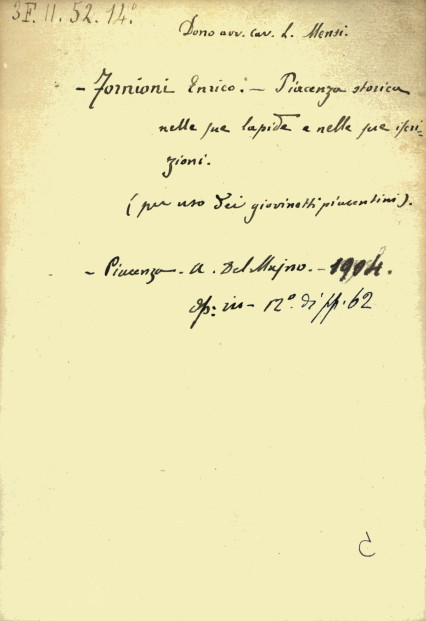 3F. II. 52. 14°
Dono avv. cav. L. Mensi.
- Fornioni Enrico: - Piacenza storica
nelle sue lapidi e nelle sue iscri-
zioni.
(per uso dei giovinetti piacentini).
- Piacenza - A. Del Majno. - 1914.
op: in - 12°. di pp. 62